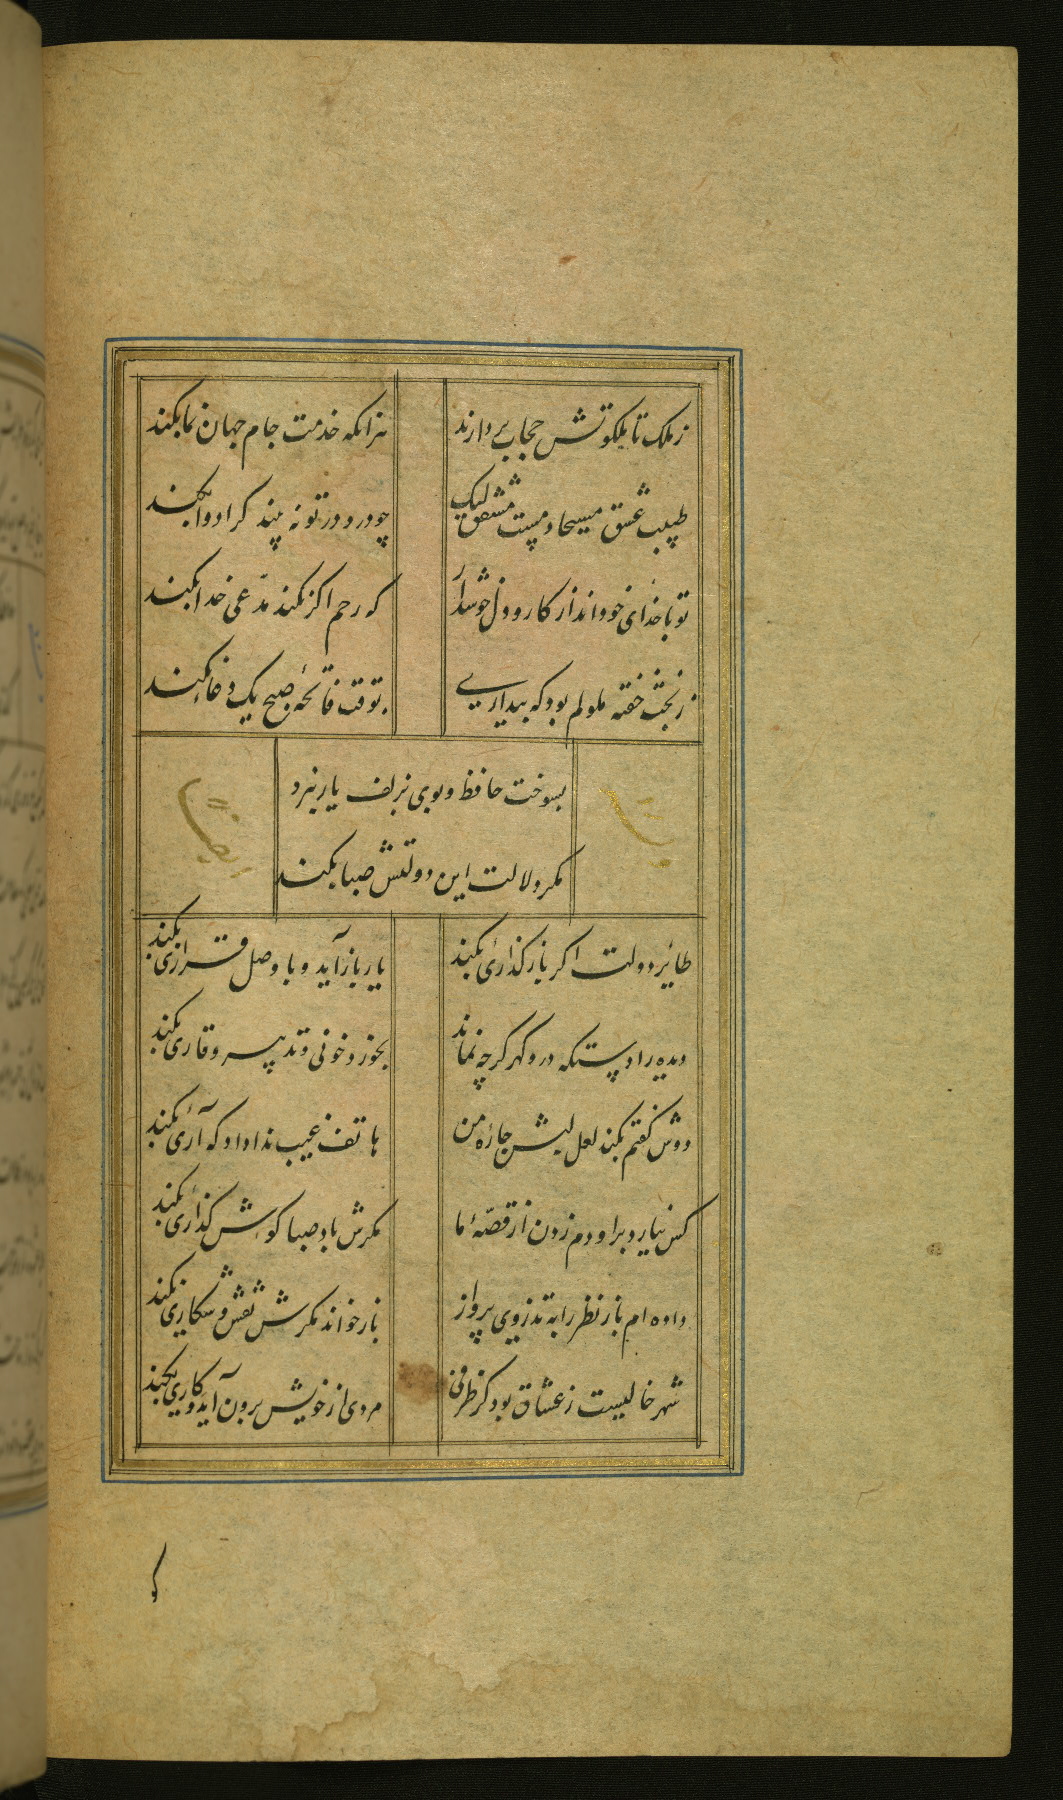 ز ملک تا ملکوتش حجاب بردارند
هرانکه خدمت جام جهان نما بکند
طبیب عشق مسیحا دمست و مشفق لیک
چو درد در تو نه بیند کرا دوا بکند
تو با خدای خود انداز کار و دل خوش دار
که رحم اکر نکند مدعی خدا بکند
ز بخت خفته ملولم بود که بیداری
بوقت فاتحهٔ صبح یک دعا بکند
بسوخت حافظ و بوی بزلف یار نبرد
مکر دلالت این دولتش صبا بکند
طایر دولت اکر باز کذاری بکند
یار باز آید و با وصل قراری بکند
دیده را دستکه در و کهر کرچه نماند
بخورد خونی و تدبیر و قاری بکند
دوش کفتم بکند لعل لبش چارهٔ من
هاتف غیب ندا داد که آری بکند
کس نیارد بر او دم زدن از قصهٔ ما
مکرش باد صبا کوش کذاری بکند
داده ام باز نظر را به تذروی پرواز
باز خواند مکرش نقش و شکاری بکند
شهر خالیست ز عشاق بود کز طرفی
مردی از خویش برون آید و کاری بکند
کو